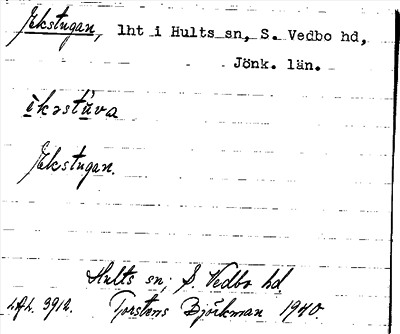 Ekstugan, lht i Hults sn, S. Vedbo hd,
Jönk. län.
èkstùva
Ekstugan.
Hults sn; S. Vedbo hd
3912. Torstens Björkman 1940